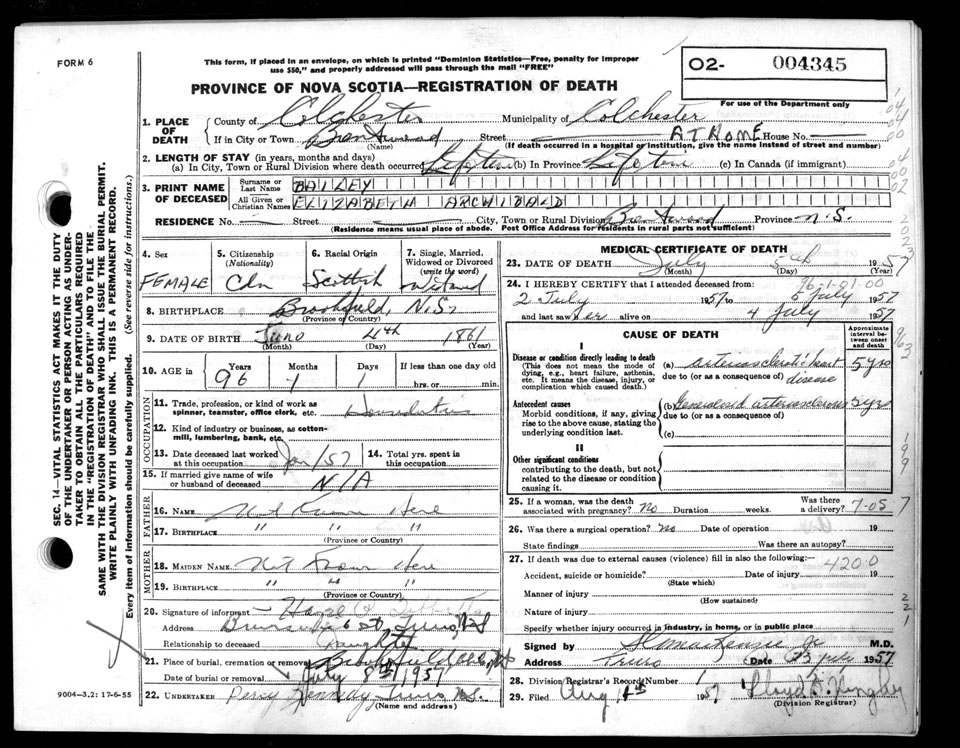 FORM 6
This form, if placed in an envelope, on which is printed "Dominion Statistics—Free, penalty for improper
use $50," and properly addressed will pass through the mail "FREE"
O2- 004345
For use of the Department only
PROVINCE OF NOVA SCOTIA—REGISTRATION OF DEATH
1. PLACE OF DEATH
County of Colchester Municipality of Colchester
If in City or Town Brentwood (Name) Street AT HOME House No.
(If death occurred in a hospital or institution, give the name instead of street and number)
2. LENGTH OF STAY (in years, months and days)
(a) In City, Town or Rural Division where death occurred Lifetime (b) In Province Lifetime (c) In Canada (if immigrant)
3. PRINT NAME OF DECEASED
Surname or Last Name BAILEY
All Given or Christian Names ELIZABETH ARCHIBALD
RESIDENCE No. Street City, Town or Rural Division Brentwood Province N.S.
(Residence means usual place of abode. Post Office Address for residents in rural parts not sufficient)
4. Sex
FEMALE
5. Citizenship (Nationality)
Cdn
6. Racial Origin
Scottish
7. Single, Married, Widowed or Divorced (write the word)
Widowed
8. BIRTHPLACE Brookfield, N.S.
(Province or Country)
9. DATE OF BIRTH June 4th 1861
(Month) (Day) (Year)
10. AGE in Years Months Days If less than one day old
96 1 1 hrs. or min.
OCCUPATION
11. Trade, profession, or kind of work as spinner, teamster, office clerk, etc. Houseduties
12. Kind of industry or business, as cotton-mill, lumbering, bank, etc.
13. Date deceased last worked at this occupation Jan/57
14. Total yrs. spent in this occupation
15. If married give name of wife or husband of deceased N/A
FATHER
16. NAME Not Known Here
17. BIRTHPLACE " " "
(Province or Country)
MOTHER
18. MAIDEN NAME Not Known Here
19. BIRTHPLACE " " "
(Province or Country)
20. Signature of informant Hazel
Address St Truro, NS
Relationship to deceased Daughter
21. Place of burial, cremation or removal Brookfield
Date of burial or removal July 8th 1957
22. UNDERTAKER Percy Kennedy Truro N.S.
(Name and address)
MEDICAL CERTIFICATE OF DEATH
23. DATE OF DEATH July 5th 1957
(Month) (Day) (Year)
24. I HEREBY CERTIFY that I attended deceased from:
96-1-01.00
2 July 1957 to 5 July 1957
and last saw her alive on 4 July 1957
CAUSE OF DEATH
Approximate interval between onset and death
I
Disease or condition directly leading to death
(This does not mean the mode of dying, e.g., heart failure, asthenia, etc. It means the disease, injury, or complication which caused death.)
(a) arteriosclerotic heart disease 5 yrs
due to (or as a consequence of)
Antecedent causes
Morbid conditions, if any, giving rise to the above cause, stating the underlying condition last.
(b) Generalized arteriosclerosis 5 yrs
due to (or as a consequence of)
(c)
II
Other significant conditions
contributing to the death, but not related to the disease or condition causing it.
25. If a woman, was the death associated with pregnancy? No Duration weeks. Was there a delivery? 7-05 7
26. Was there a surgical operation? No Date of operation 19
State findings Was there an autopsy?
27. If death was due to external causes (violence) fill in also the following:—
420.0
Accident, suicide or homicide? Date of injury 19
(State which)
Manner of injury
(How sustained)
Nature of injury
Specify whether injury occurred in industry, in home, or in public place
Signed by M.D.
Address Truro Date 23 July 1957
28. Division Registrar's Record Number 1
29. Filed Aug 1957 Lloyd
(Division Registrar)
SEC. 14—VITAL STATISTICS ACT MAKES IT THE DUTY
OF THE UNDERTAKER OR PERSON ACTING AS UNDER-
TAKER TO OBTAIN ALL THE PARTICULARS REQUIRED
IN THE "REGISTRATION OF DEATH" AND TO FILE THE
SAME WITH THE DIVISION REGISTRAR WHO SHALL ISSUE THE BURIAL PERMIT.
WRITE PLAINLY WITH UNFADING INK. THIS IS A PERMANENT RECORD.
Every item of information should be carefully supplied. (See reverse side for instructions.)
9004-3.2: 17-6-55